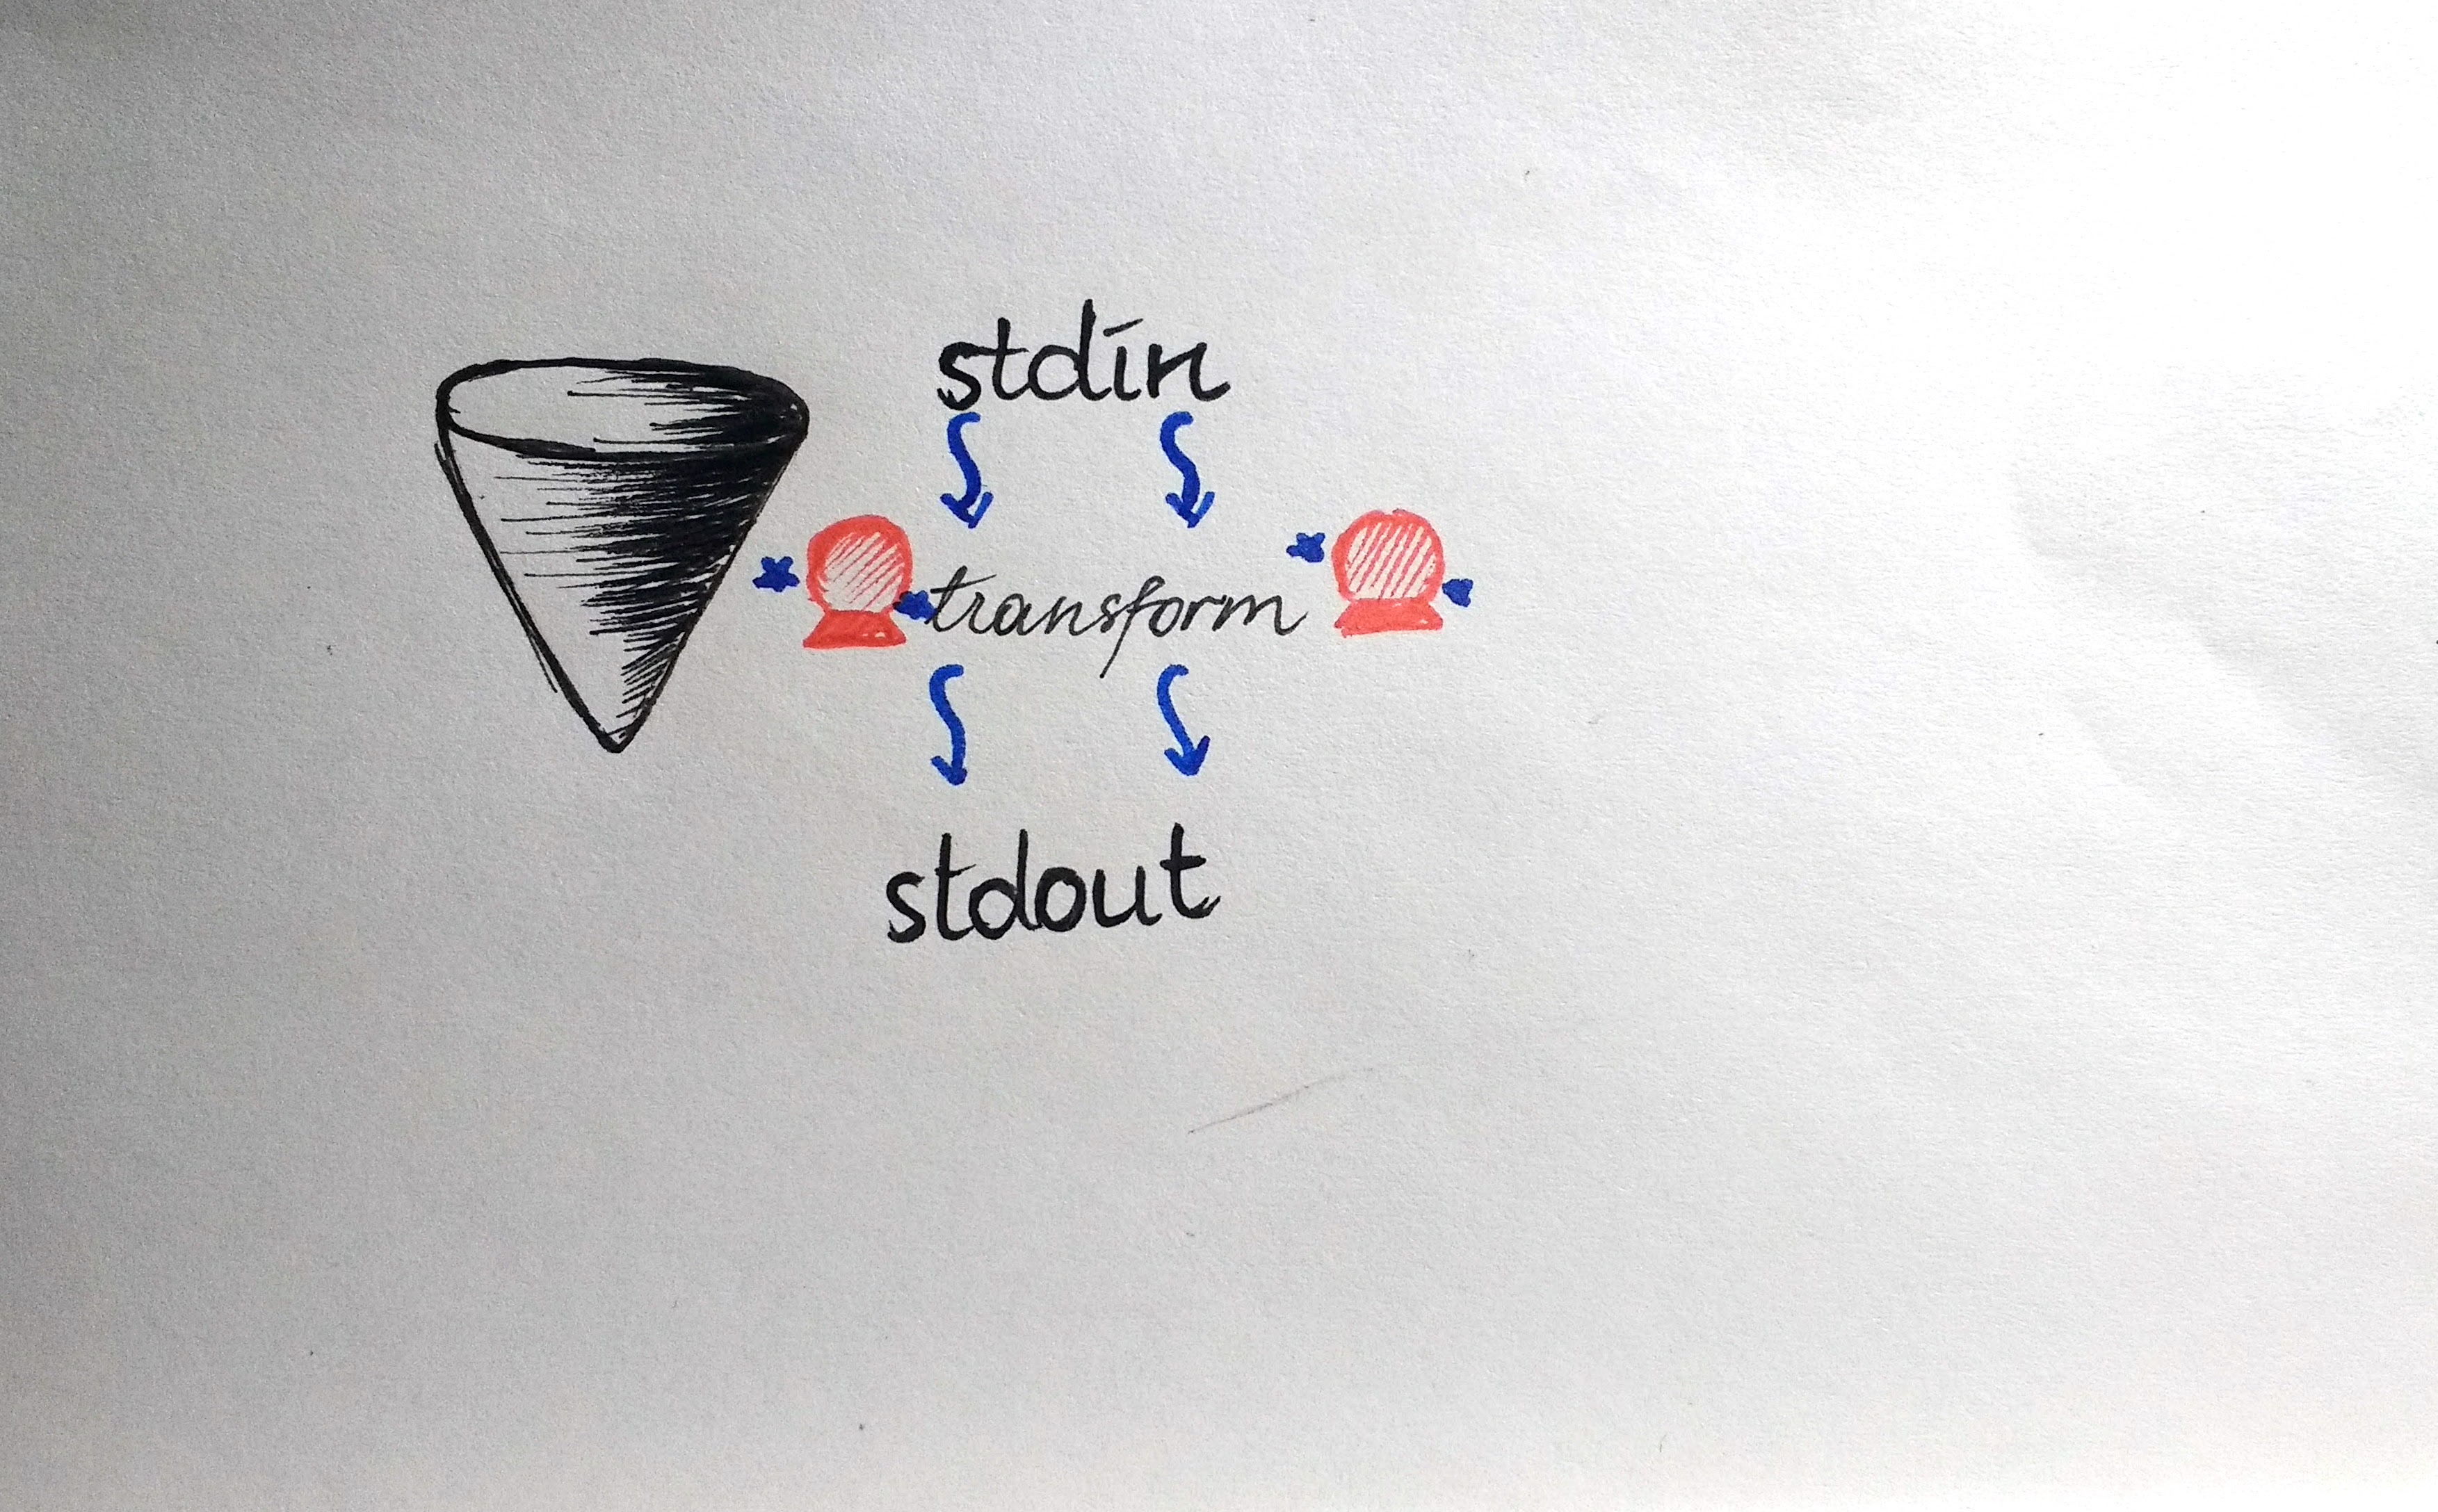 stdin
transform
stdout